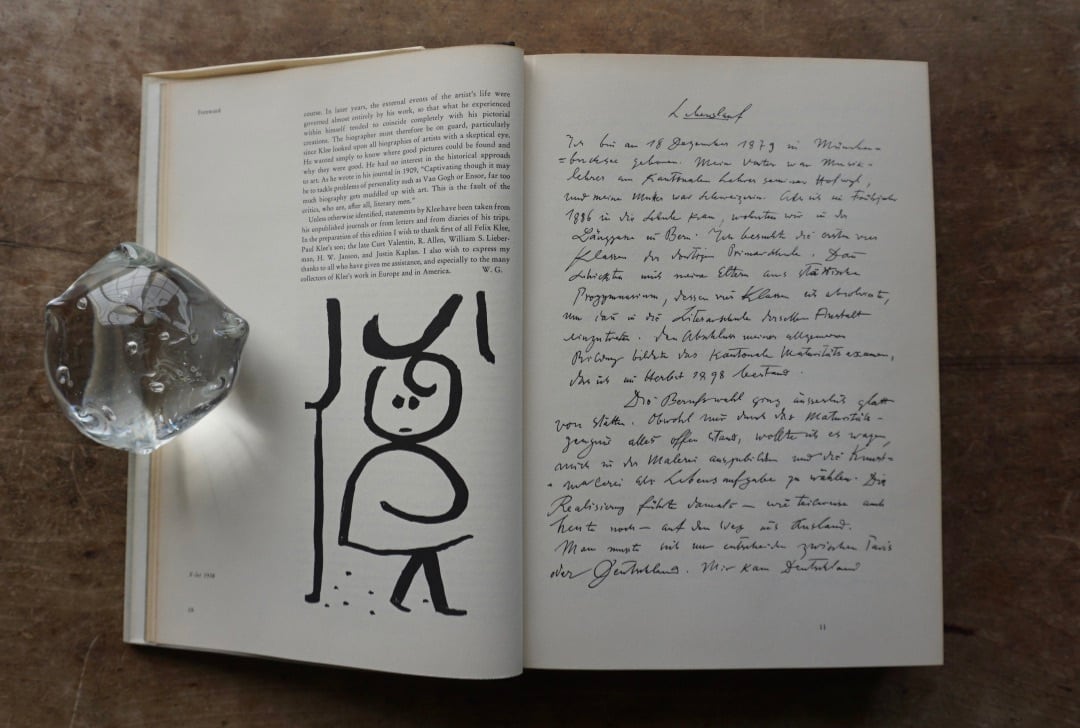 Foreword
course. In later years, the external events of the artist's life were
governed almost entirely by his work, so that what he experienced
within himself tended to coincide completely with his pictorial
creations. The biographer must therefore be on guard, particularly
since Klee looked upon all biographies of artists with a skeptical eye.
He wanted simply to know where good pictures could be found and
why they were good. He had no interest in the historical approach
to art. As he wrote in his journal in 1909, "Captivating though it may
be to tackle problems of personality such as Van Gogh or Ensor, far too
much biography gets muddled up with art. This is the fault of the
critics, who are, after all, literary men."
Unless otherwise identified, statements by Klee have been taken from
his unpublished journals or from letters and from diaries of his trips.
In the preparation of this edition I wish to thank first of all Felix Klee,
Paul Klee's son; the late Curt Valentin, R. Allen, William S. Lieber-
man, H. W. Janson, and Justin Kaplan. I also wish to express my
thanks to all who have given me assistance, and especially to the many
collectors of Klee's work in Europe and in America. W. G.
1938
10
Lebenslauf
Ich bin am 18 Dezember 1879 in München-
=buchsee geboren. Mein Vater war Musik-
lehrer am Kantonalen Lehrerseminar Hofwyl,
und meine Mutter war Schweizerin. Als ich im Frühjahr
1886 in die Schule kam, wohnten wir in der
Länggasse in Bern. Ich besuchte die ersten vier
Klassen der dortigen Primarschule. Dann
schickten mich meine Eltern ans städtische
Progymnasium, dessen vier Klassen ich absolvierte,
um dann in die Literarschule derselben Anstalt
einzutreten. Den Abschluss meiner allgemeinen
Bildung bildete das Kantonale Maturitätsexamen,
das ich im Herbst 1898 bestand.
Die Berufswahl ging äusserlich glatt
von statten. Obwohl mir durch das Maturitäts-
zeugnis alles offen stand, wollte ich es wagen,
mich in der Malerei auszubilden und die Kunst-
malerei als Lebensaufgabe zu wählen. Die
Realisierung führte damals — wie teilweise auch
heute noch — auf den Weg ins Ausland.
Man musste sich nur entscheiden zwischen Paris
oder Deutschland. Mir kam Deutschland
11